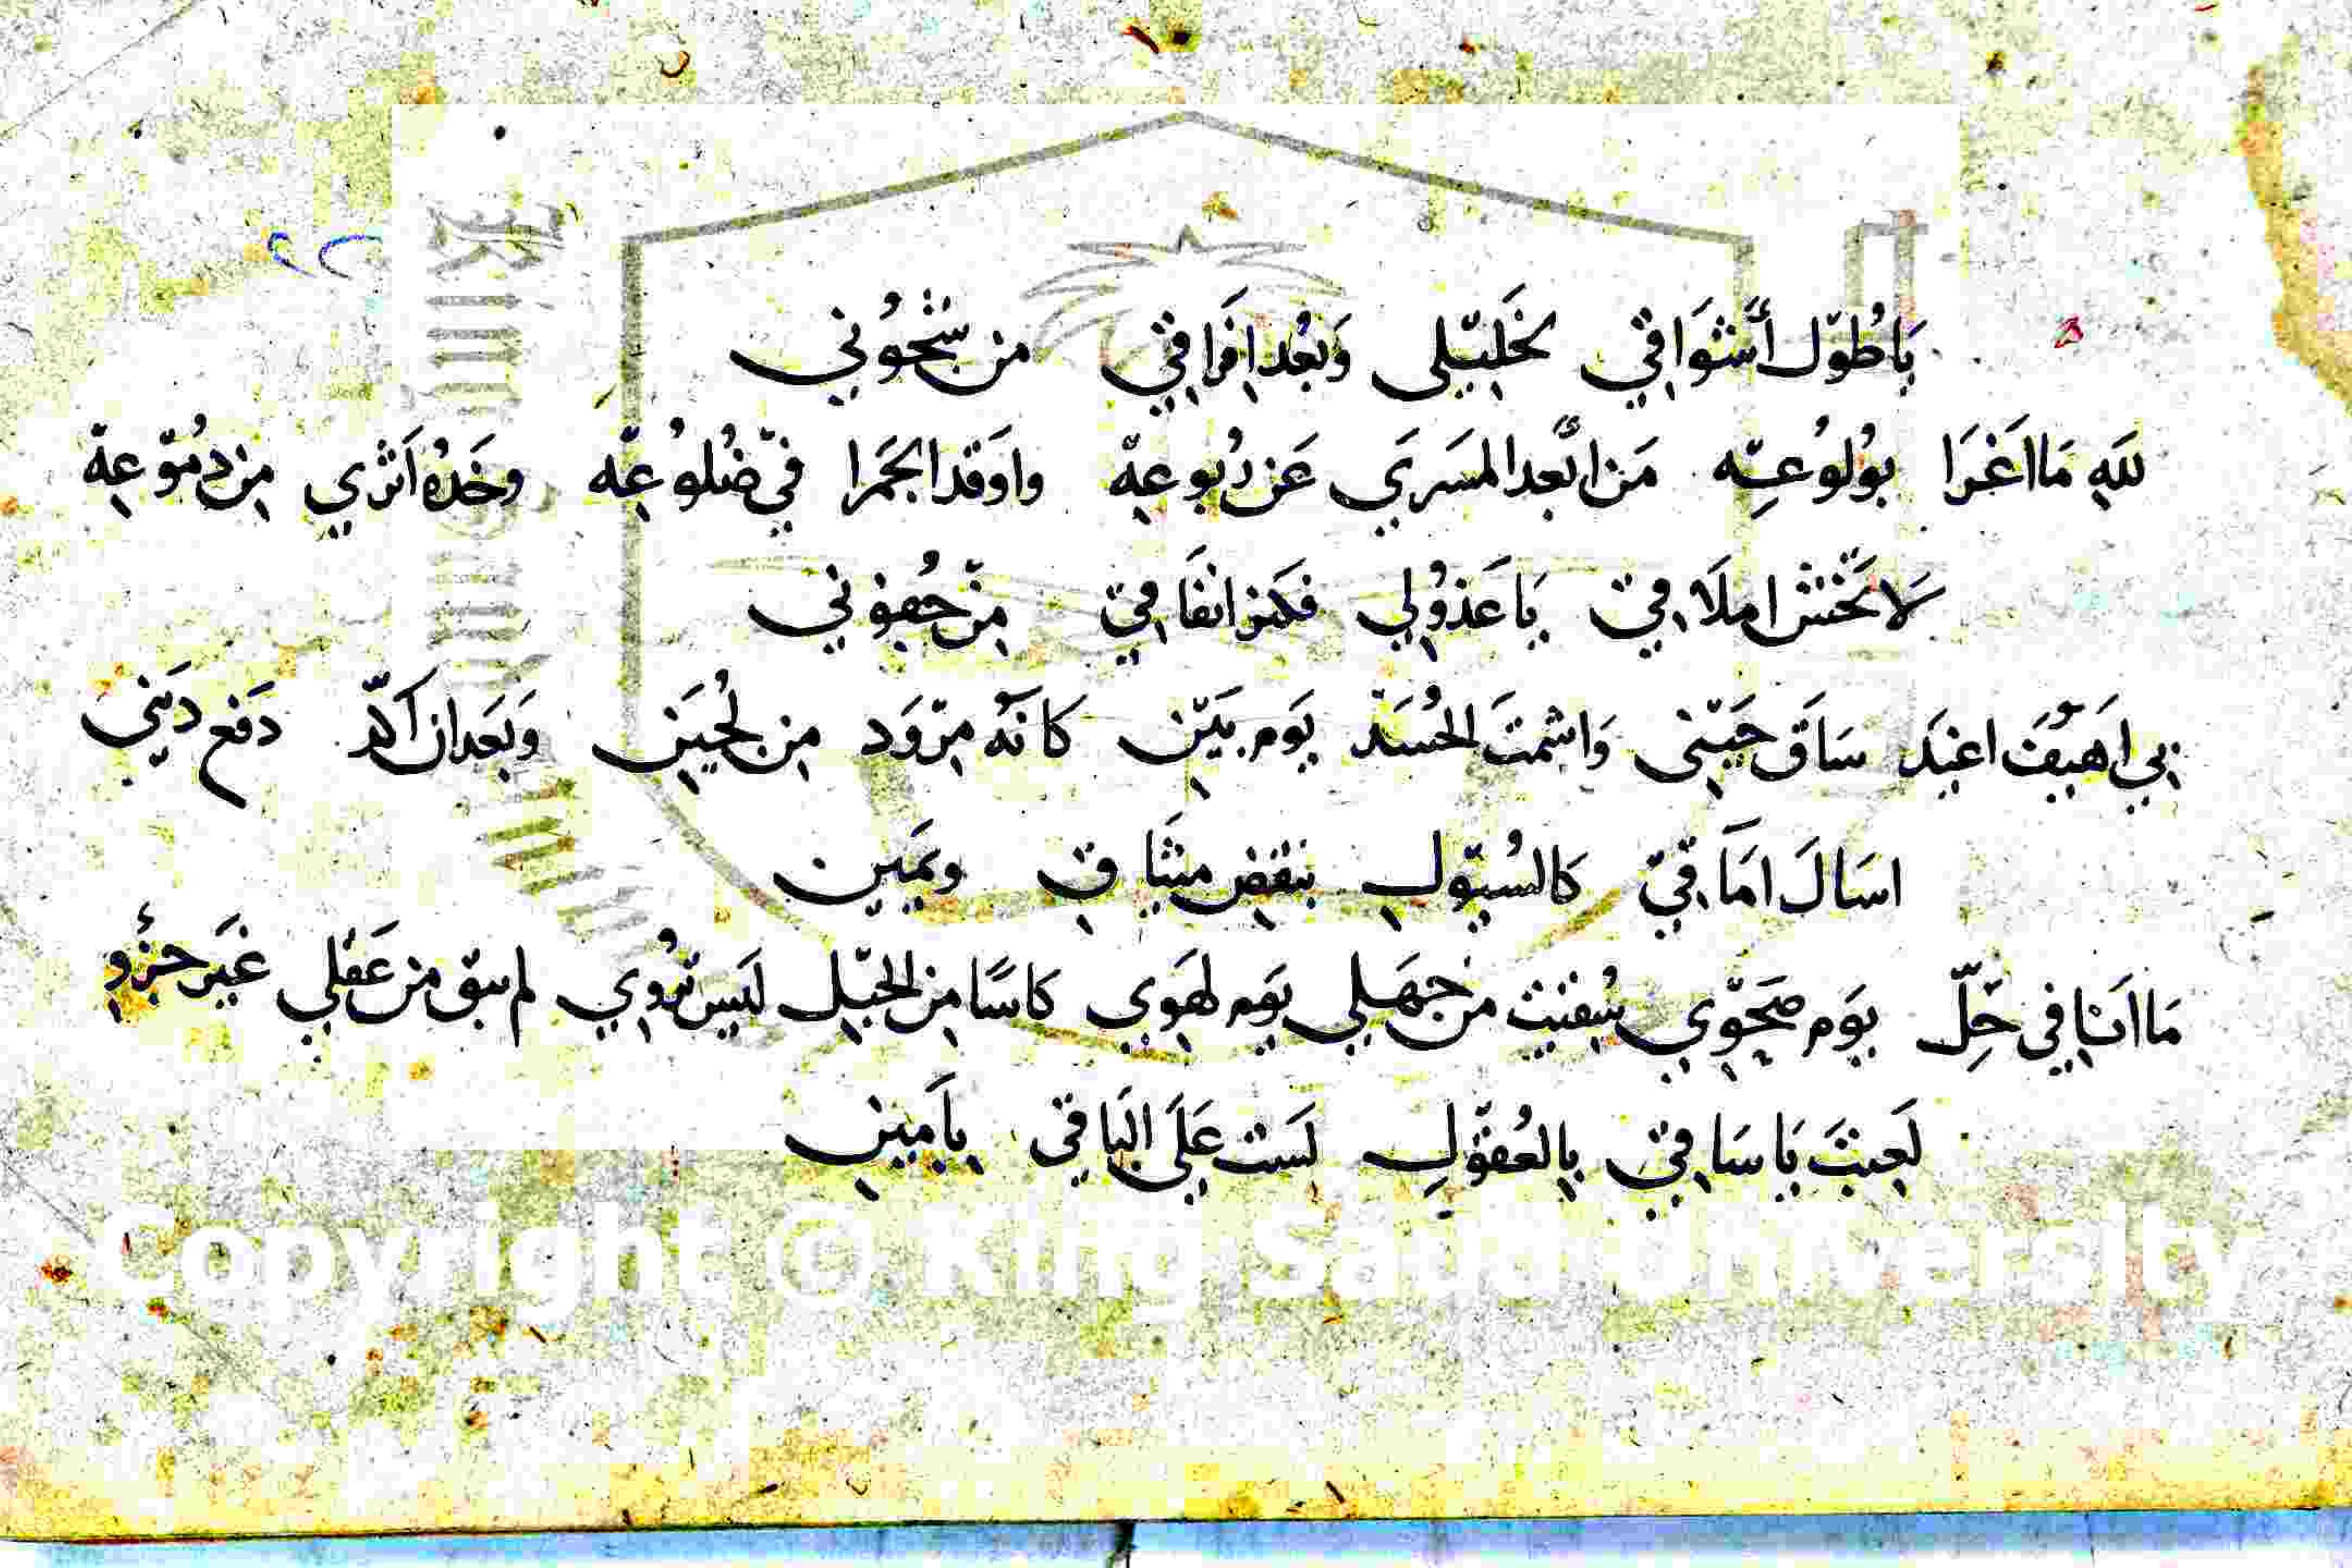 ٢٢
يَا طُوْل أَشوَاقِيْ لخَلِيْلي وَبُعْد افرَاقِيْ من شُجُوْني
للهِ مَا اَغرَا بوُلُوعِه مَن ابعد المَسرَي عَن رُبوعِهْ واوَقد الجَمرَا فيْ ضُلوُعِهْ وخَدُه اَثري مِن دمُوْعِهْ
لا تخش املَاقِيْ يَا عَذُولِي فكمن انفَاقِيْ مِنْ جُفوُني
بِي اَهيَف اغيَد سَاقَ حَيْني وَاشمتَ الحُسَد يَوم بَيْن كانَه مِرْوَد مِن لُجَين وَبَعد ان اَكّد دَفع دَيني
اسَالَ امَاقِيْ كالسُيوْل بنقض ميثَاقي ويَمين
مَا انَا في حِلّ يَوم صَحْوِي سُقيت من جَهلي يَوم لهَوِي كاسًا مِن الخَبْل لَيس تُروِي لم يبق من عَقلي غَير جزُو
لَعِبتَ يَا سَاقِيْ بِالعُقوْلِ لَست عَلَى البَاقي يامين
Copyright © King Saud University